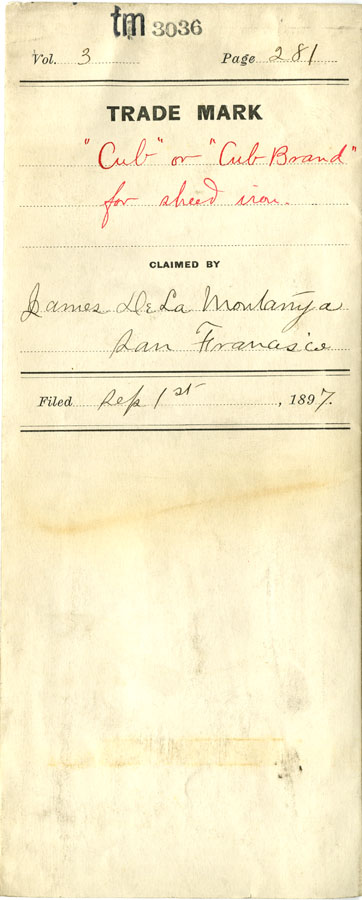 tm 3036
Vol. 3 Page 281
TRADE MARK
"Cub" or "Cub Brand"
for sheed iron.
CLAIMED BY
James De La Montanya
San Francisco
Filed Sep 1st, 1897.